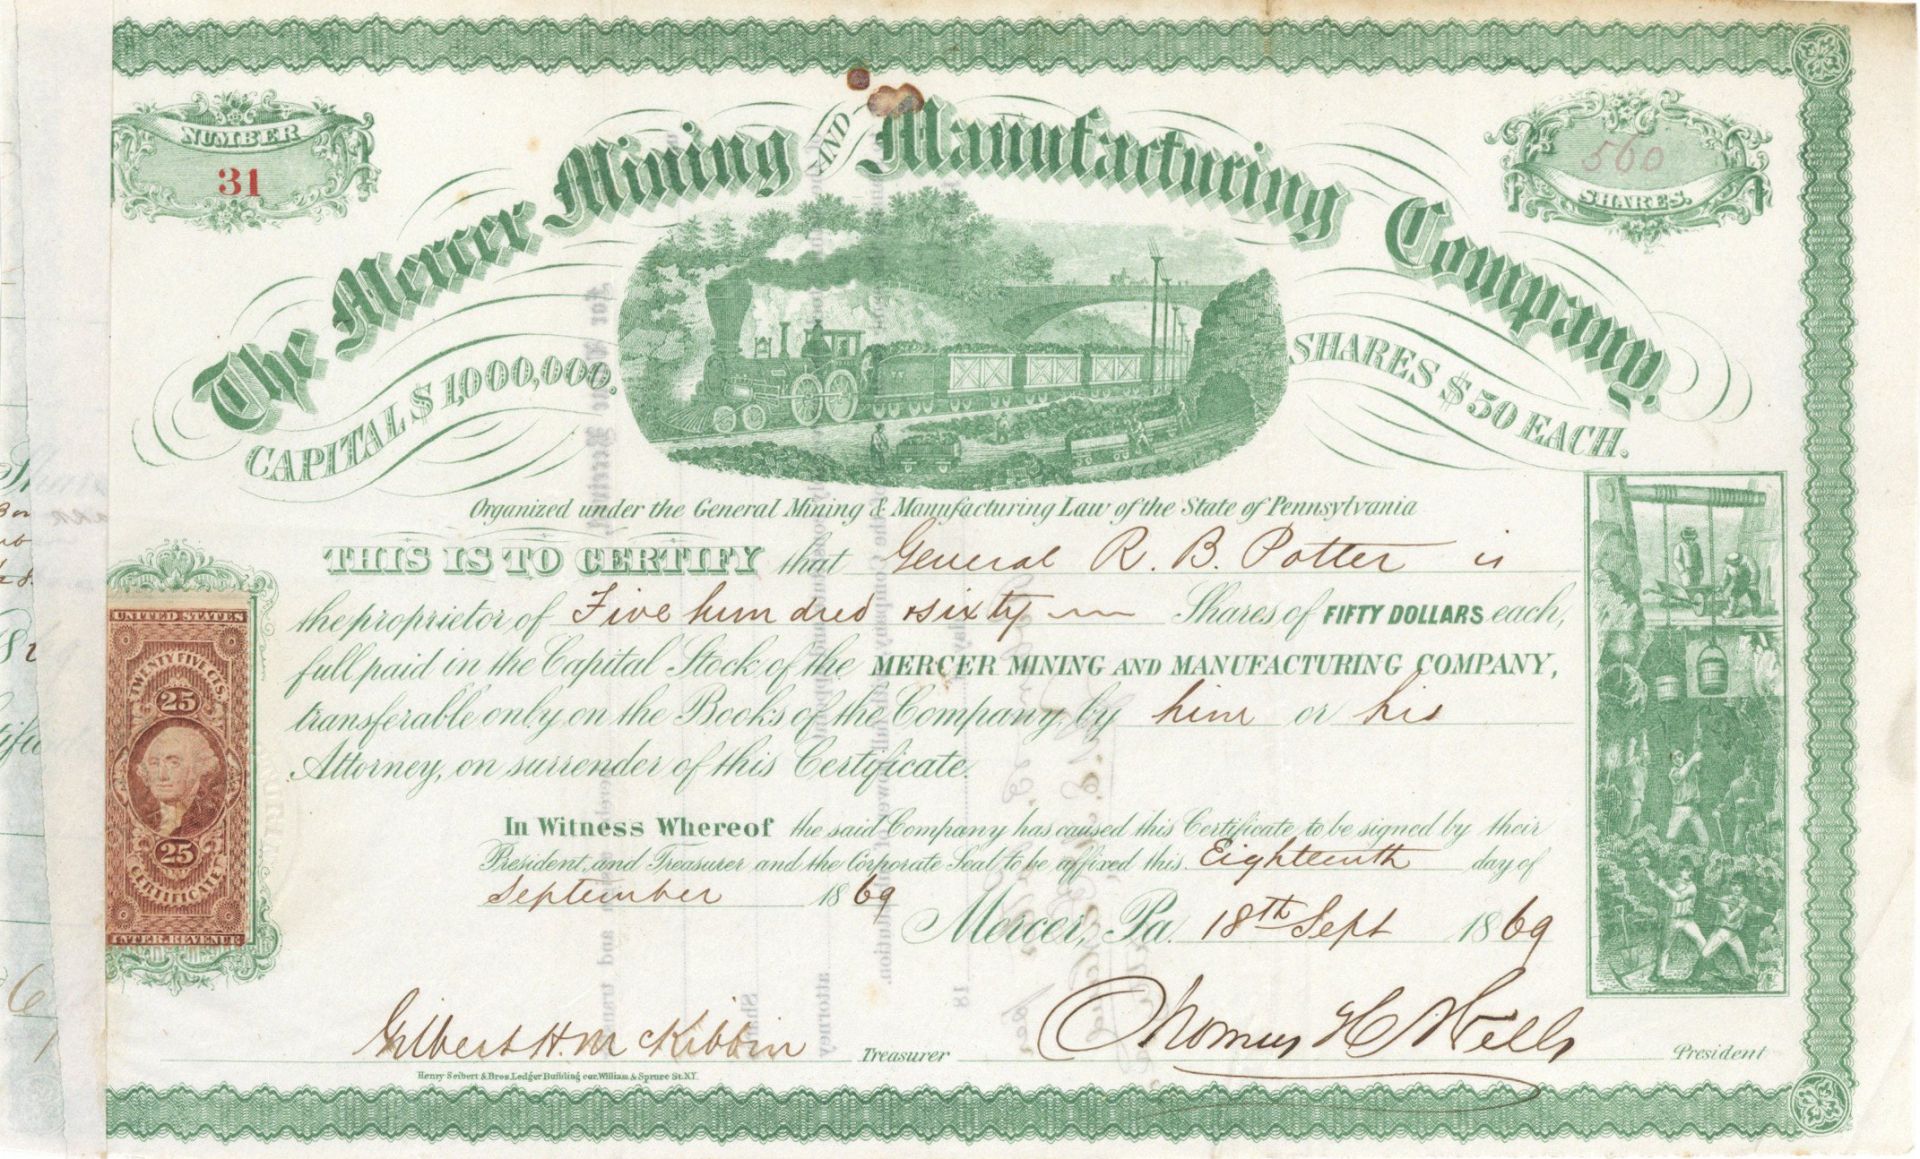 NUMBER
31
The Mercer Mining AND Manufacturing Company
560
SHARES.
CAPITAL $1,000,000.
SHARES $50 EACH.
Organized under the General Mining & Manufacturing Law of the State of Pennsylvania
THIS IS TO CERTIFY that General R. B. Potter is
the proprietor of Five hundred & sixty Shares of FIFTY DOLLARS each,
full paid in the Capital Stock of the MERCER MINING AND MANUFACTURING COMPANY,
transferable only on the Books of the Company by him or his
Attorney, on surrender of this Certificate.
In Witness Whereof the said Company has caused this Certificate to be signed by their
President and Treasurer and the Corporate Seal to be affixed this Eighteenth day of
September 1869
Mercer, Pa. 18th Sept 1869
UNITED STATES
TWENTY FIVE CTS.
25
25
CERTIFICATE
INTER. REVENUE
Gilbert H. McKibbin Treasurer
Thomas H Wells President
Henry Seibert & Bros. Ledger Building cor. William & Spruce St. N.Y.